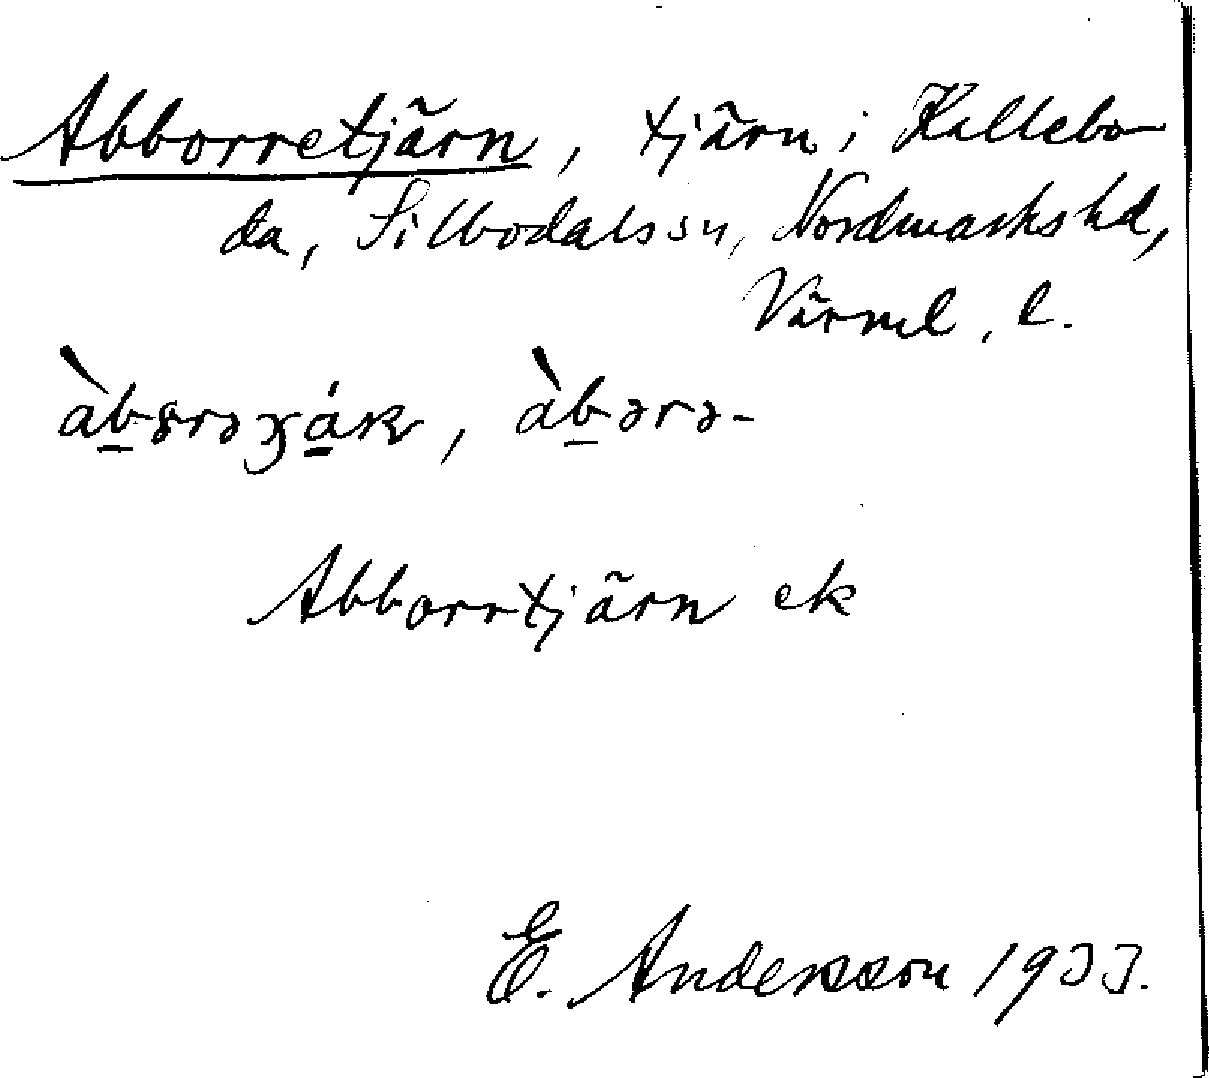 Abborretjärn, tjärn i Kållebo-
da, Silbodals sn, Nordmarks hd,
Värml. l.
Abborrtjärn ek
E. Andersson 1933.